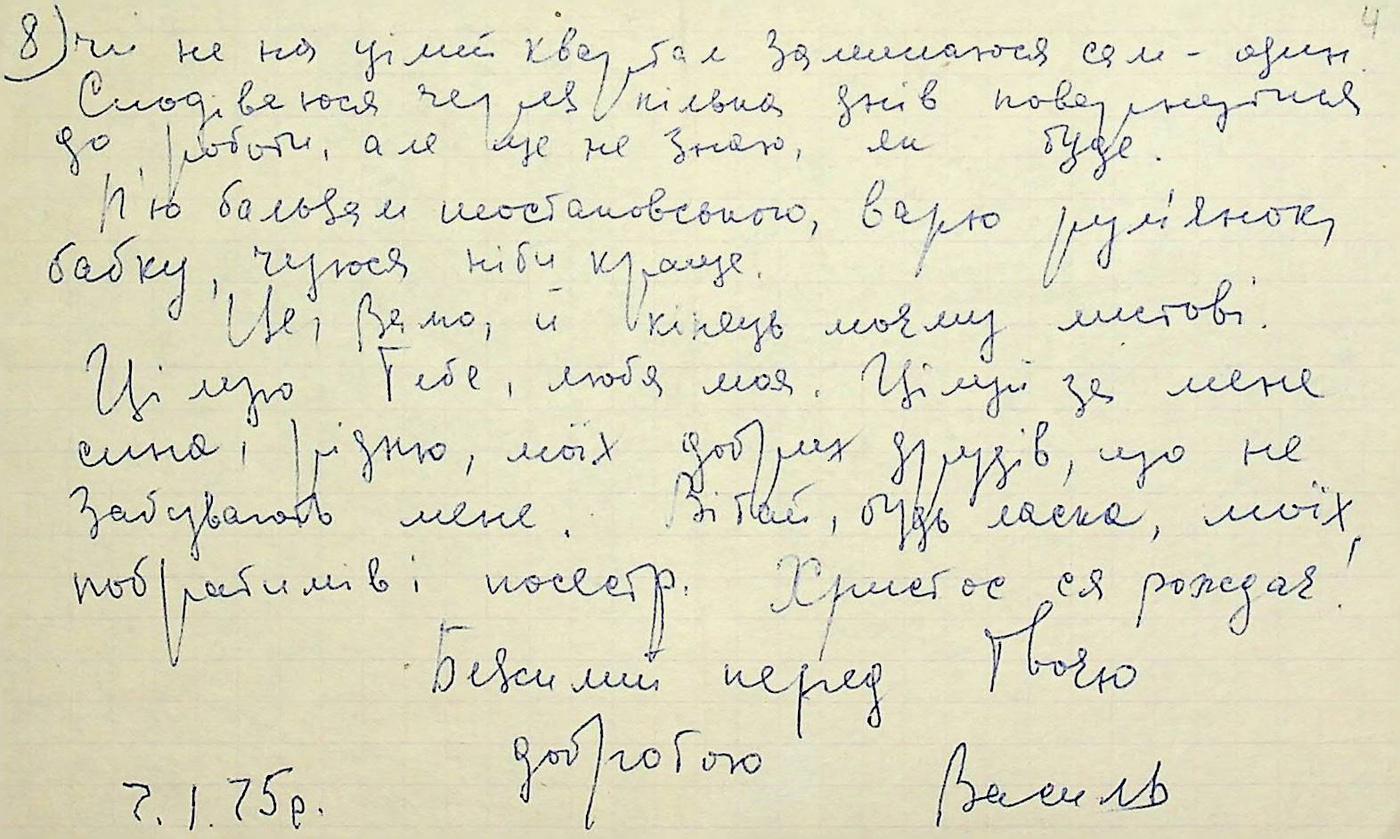 4
8) чи не на цілий квартал залишаюся сам-один.
Сподіваюся через кілька днів повернутися
до роботи, але ще не знаю, як буде.
П'ю бальзам Шостаковського, варю рум'янок,
бабку, чуюся ніби краще.
Це, Валю, й кінець моєму листові.
Цілую Тебе, люба моя. Цілуй за мене
сина, рідню, моїх добрих друзів, що не
забувають мене. Вітай, будь ласка, моїх
побратимів і посестр. Христос ся рождає!
Безсилий перед Твоєю
добротою Василь
7.I.75р.